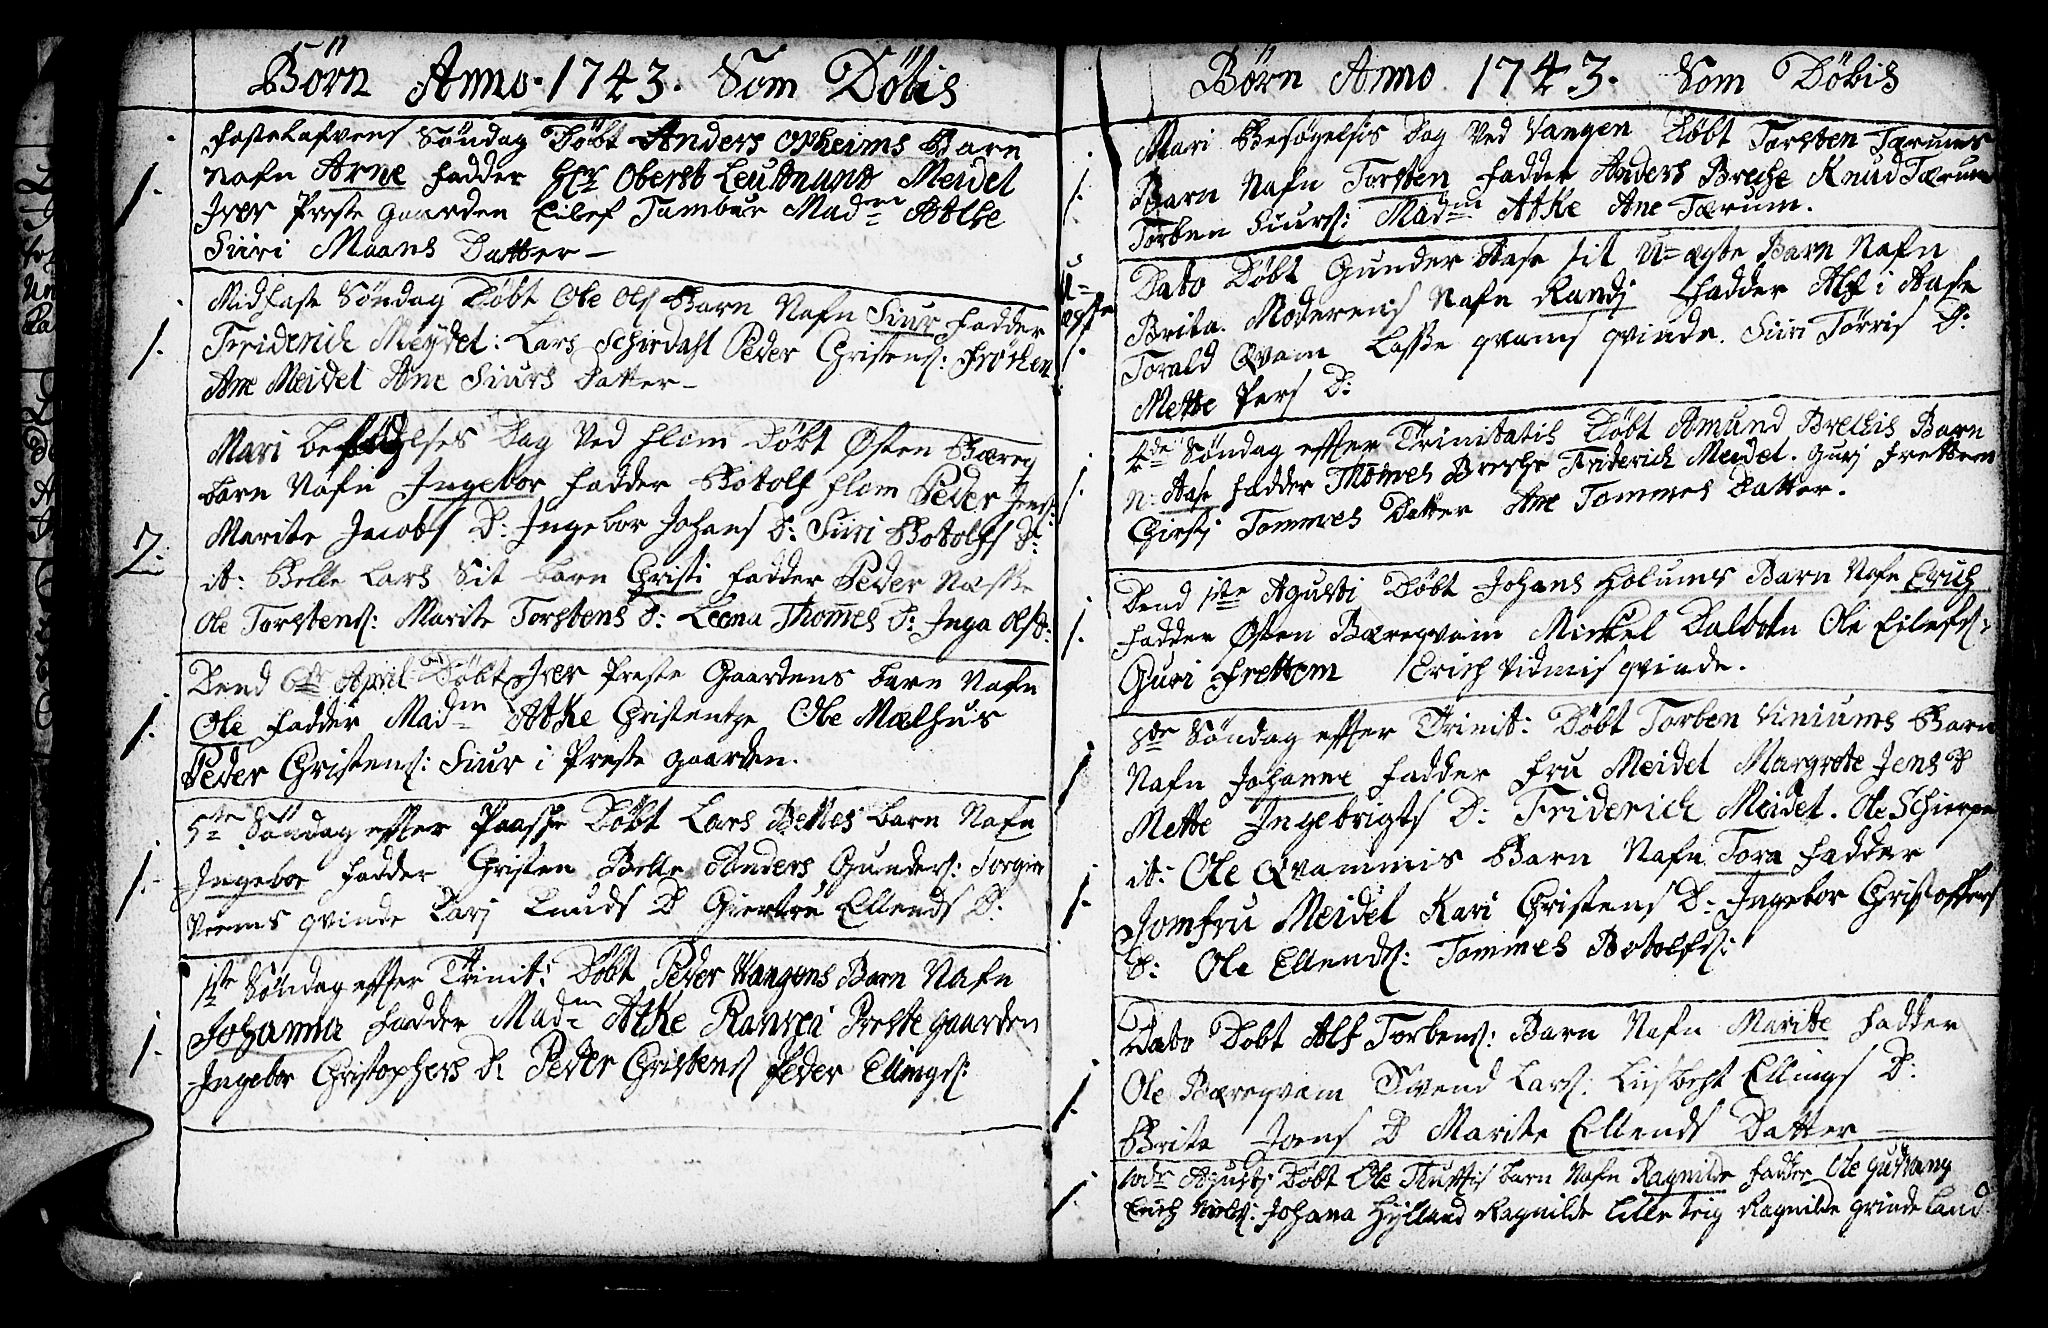 Börn Anno 1743. Som Döbis
Fastelafvens Söndag Döbt Anders Opheims Barn
Nafn Arne Fadder Hr Oberst Leutnand Meidel
Iver Preste gaarden Eilef Tambur Madm Atke
Siiri Maans Datter
1.
Midfaste Söndag Döbt Ole Ols Barn Nafn Siur Fadder
Friderich Meydel: Lars Schirdahl Peder Christens: Fröchen
Ane Meidel Ane Siurs Datter
1.
Mari Dag Ved Flom Döbt Østen Bæreg
barn Nafn Ingebor Fadder Botolf Flom Peder Jens:
Marite Jacobs D: Ingebor Johans D: Siiri Botolfs D:
it: Belle Lars Sit barn Christi Fadder Peder Næsse
Ole Torstens: Marite Torstens D: Leena Thommes D: Inga Ols D:
2.
Dend April Döbt Iver Preste Gaardens barn Nafn
Ole Fadder Madm Atke Christentze Ole Mælhus
Peder Christens: Siur i Preste gaarden.
1.
5te Söndag efter Paaske Döbt Lars Belles barn Nafn
Ingebor Fadder Christen Belle Anders Gunders:
qvinde Knuds D Giertru Ellends D:
1.
1ste Söndag efter Trinit: Döbt Peder Vangens Barn Nafn
Johanna Fadder Madm Atke Ranvei Preste gaarden
Ingebor Christophers D: Peder Christens Peder Ellings:
1.
Börn Anno 1743. Som Döbis
Mari Besøgelsis Dag Ved Vangen Döbt Torsten Tærums
Barn Nafn Torsten Fadder Anders Breche Knud Tærum
Torben Siurs: Madm Atke Ane Tærum.
1.
Dato Döbt Gunder Aase sit U=ægte Barn Nafn
Brita. Moderens Nafn Randj Fadder Alf i Aase
Torald Qvam Lasse qvams qvinde. Siiri Törris D:
Mette Pers D:
U=
ægte
1.
4de Söndag efter Trinitatis Döbt Amund Brechis Barn
N: Aase Fadder Thommes Breche Friderich Meidel. Gurj Frettem
Chirstj Tommes Datter Ane Tommes Datter.
1.
Dend 1ste Agusti Döbt Johans Holums Barn Nafn Erich
Fadder Østen Bæreqvam Mickel Dalbotn Ole Eilefs:
Guri Frettem Erich Vidmis qvinde.
1.
8de Söndag efter Trinit: Döbt Torben Viniums Barn
Nafn Johanne Fadder Fru Meidel Margrete Jens D
Mette Ingebrigts D: Friderich Meidel. Ole Schierpe
1
it: Ole Qvammis Barn Nafn Tora Fadder
Jomfru Meidel Kari Christens D: Ingebor Christoffers
D: Ole Ellends: Tommes Botolfs:
1.
Dato Dobt Alf Torbens: Barn Nafn Marite Fadder
Ole Bæreqvam Svend Lars: Lisbeht Ellings D:
Brita Joens D Marite Ellends Datter
1.
10de Agusti Döbt Ole barn Nafn Ragnilde Fadder Ole Gudvang
Erich Johana Hylland Ragnilde Lille teig Ragnilde Grinde land
1.